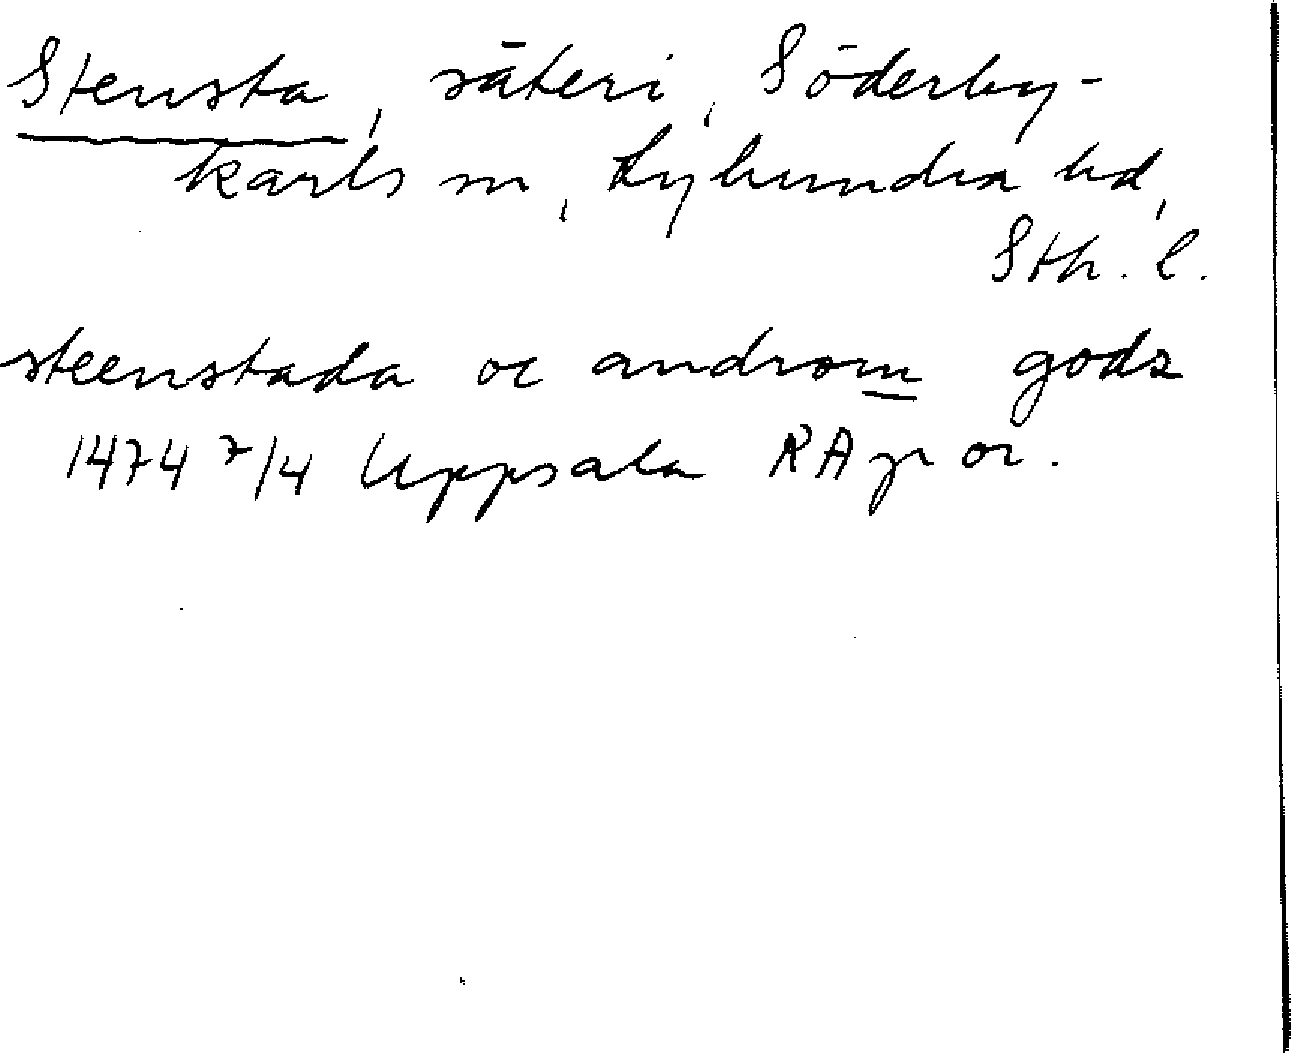 Stensta, säteri, Söderby-
karls sn, Lyhundra hd,
Sth. l.
steenstada oc androm gods
1474 7/4 Uppsala RA p or.